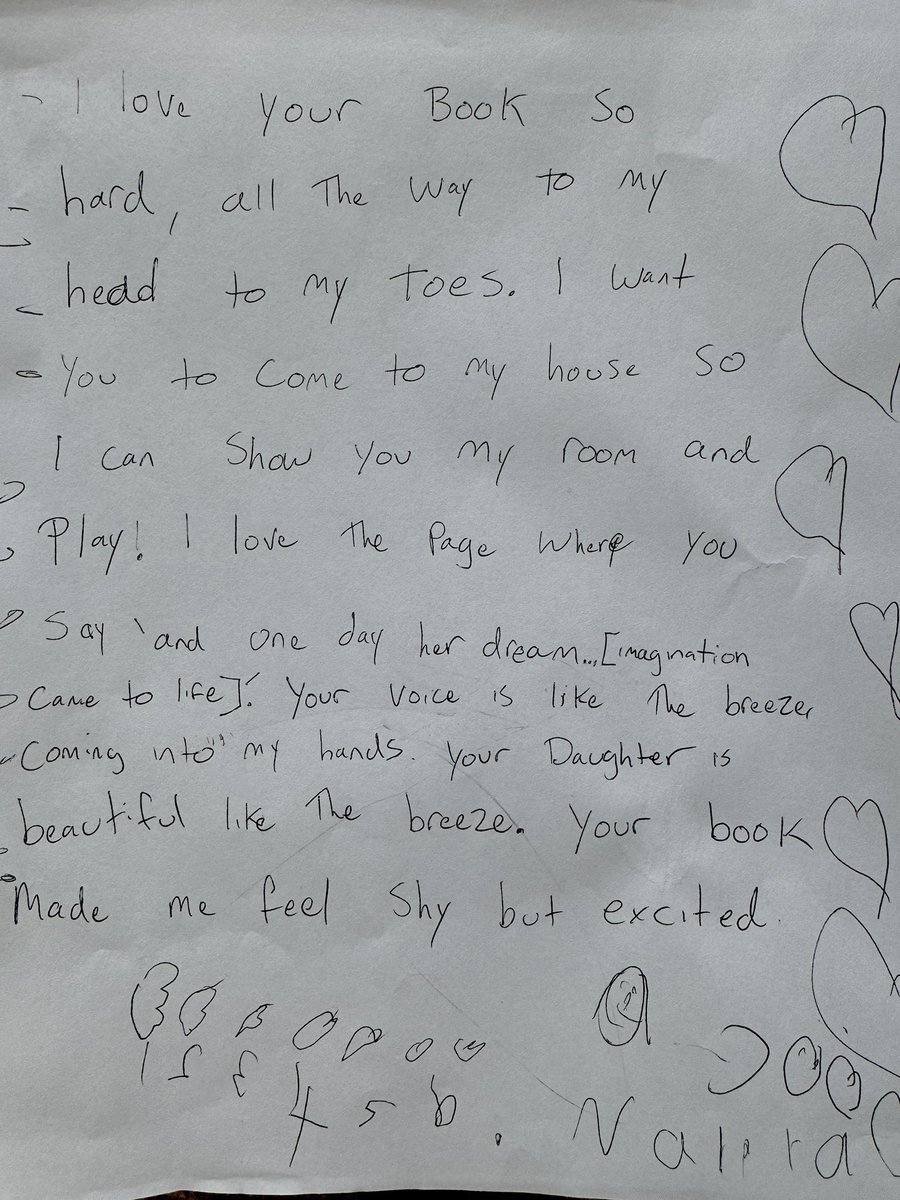 I love your Book so
hard, all The way to my
hedd to my Toes. I want
You to come to my house so
I can Show you my room and
Play! I love the page where you
Say 'and one day her dream...[imagination
came to life]'. Your voice is like The breeze,
Coming into my hands. Your Daughter is
beautiful like The breeze. Your book
Made me feel Shy but excited.
4 5 6 .